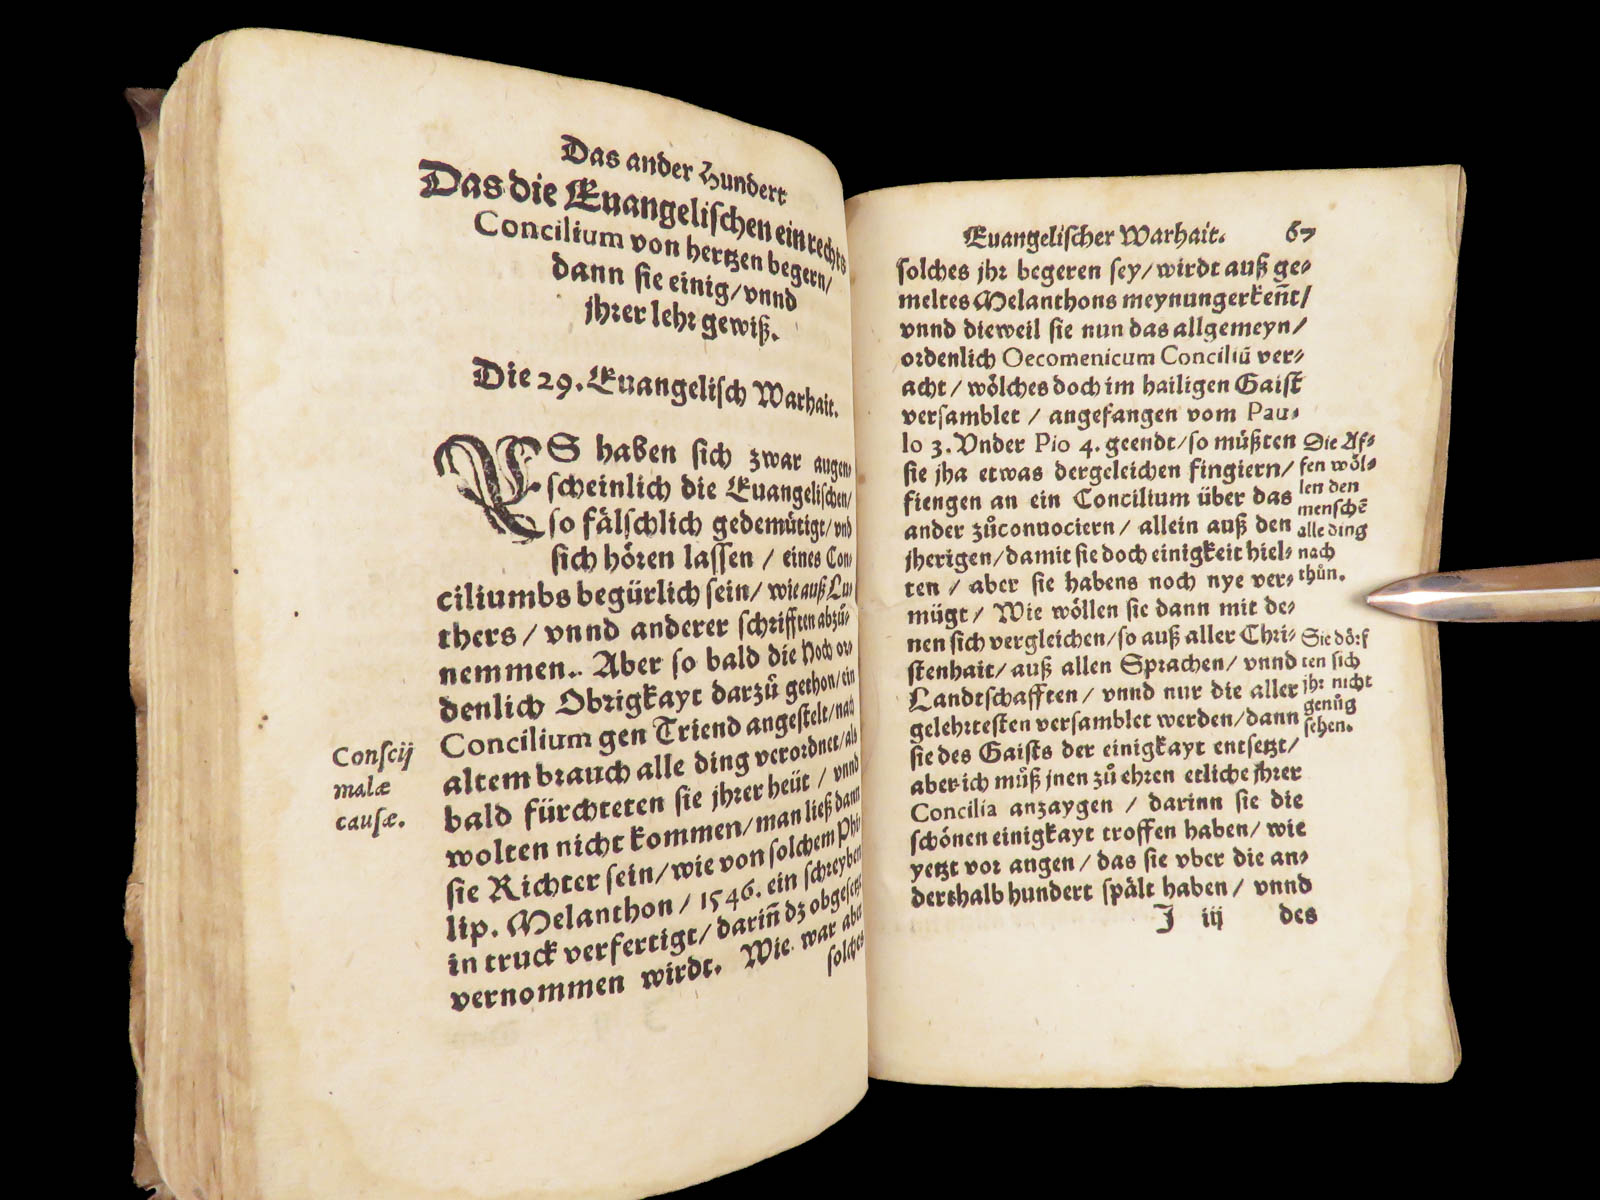 Das ander Hundert
Das die Euangelischen ein rechts
Concilium von hertzen begern/
dann sie einig/vnnd
jhrer lehr gewiß.
Die 29. Euangelisch Warhait.
ES haben sich zwar augen⸗
scheinlich die Euangelischen/
so fälschlich gedemütigt/vnd
sich hören lassen / eines Con⸗
ciliumbs begürlich sein/ wie auß Lu⸗
thers / vnnd anderer schrifften abzů⸗
nemmen. Aber so bald die Hoch or⸗
denlich Obrigkayt darzů gethon/ein
Concilium gen Triend angestelt/nach
altem brauch alle ding verordnet/als
bald fürchteten sie jhrer heüt / vnnd
wolten nicht kommen/man ließ dann
sie Richter sein/wie von solchem Phi⸗
lip. Melanthon / 1546. ein schreyben
in truck verfertigt/ dariñ dz obgesetzt
vernommen wirdt. Wie war aber
solches
Conscij
malæ
causæ.
Euangelischer Warhait. 67
solches jhr begeren sey/wirdt auß ge⸗
meltes Melanthons meynung erkeñt/
vnnd dieweil sie nun das allgemeyn/
ordenlich Oecomenicum Conciliũ ver⸗
acht / wölches doch im hailigen Gaist
versamblet / angefangen vom Pau⸗
lo 3. Vnder Pio 4. geendt/so müßten
sie jha etwas dergeleichen fingiern/
fiengen an ein Concilium über das
ander zůconuociern / allein auß den
jherigen/damit sie doch einigkeit hiel⸗
ten / aber sie habens noch nye ver⸗
mügt/ Wie wöllen sie dann mit de⸗
nen sich vergleichen/so auß aller Chri⸗
stenhait/ auß allen Sprachen/ vnnd
Landtschafften / vnnd nur die aller
gelehrtesten versamblet werden/dann
sie des Gaists der einigkayt entsetzt/
aber ich můß jnen zů ehren etliche jhrer
Concilia anzaygen / darinn sie die
schönen einigkayt troffen haben/ wie
yetzt vor angen / das sie vber die an⸗
derthalb hundert spält haben / vnnd
J iij des
Die Af⸗
fen wöl⸗
len den
menschẽ
alle ding
nach
thůn.
Sie dörf
ten sich
jhr nicht
genůg
sehen.